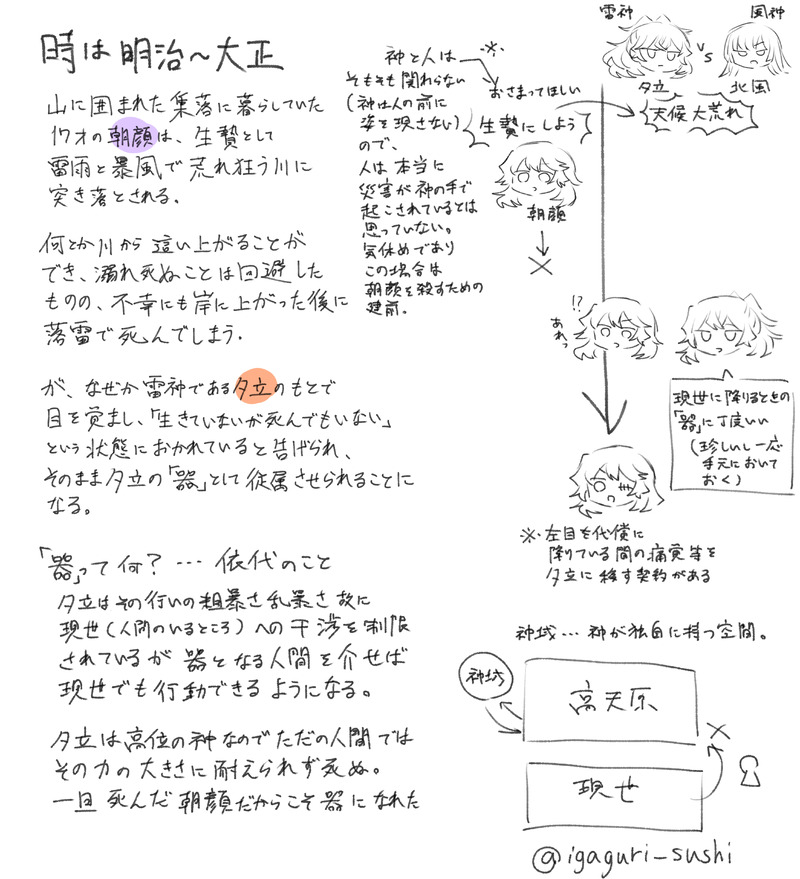 時は明治〜大正
山に囲まれた集落に暮らしていた
17才の朝顔は、生贄として
雷雨と暴風で荒れ狂う川に
突き落とされる。
何とか川から這い上がることが
でき、溺れ死ぬことは回避した
ものの、不幸にも岸に上がった後に
落雷で死んでしまう.
が、なぜか雷神である夕立のもとで
目を覚まし、「生きていないが死んでもいない」
という状態におかれていると告げられ、
そのまま夕立の「器」として従属させられることに
なる。
「器」って何?…依代のこと
夕立はその行いの粗暴さ乱暴さ故に
現世(人間のいるところ)への干渉を制限
されているが器となる人間を介せば
現世でも行動できるようになる。
夕立は高位の神なのでただの人間では
その力の大きさに耐えられず死ぬ。
一旦死んだ朝顔だからこそ器になれた
神と人は
そもそも関わらない
(神は人の前に
姿を現さない)
ので、
人は本当に
災害が神の手で
起こされているとは
思っていない。
気休めであり
この場合は
朝顔を殺すための
建前。
※
おさまってほしい
生贄にしよう
朝顔
雷神
風神
vs
夕立
北風
天候大荒れ
!?
あれっ
現世に降りるときの
「器」に丁度いい
(珍しいし一応
手元において
おく)
※左目を代償に
降りている間の痛覚等を
夕立に移す契約がある
神域…神が独自に持つ空間。
神域
高天原
現世
@igaguri_sushi